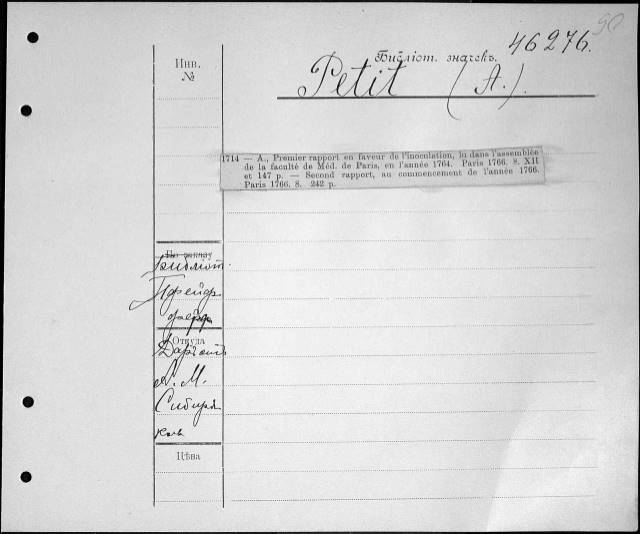 90
Инв.
№
Библіот. значекъ.
46276.
Petit (A.).
1714 — A., Premier rapport en faveur de l'inoculation, lu dans l'assemblée
de la faculté de Méd. de Paris, en l'année 1764. Paris 1766. 8. XII
et 147 p. — Second rapport, au commencement de l'année 1766.
Paris 1766. 8. 242 p.
По заказу
Библіот.
Пфейф
фера
Откуда
Даръ отъ
А. М.
Сибиря
кова
Цѣна